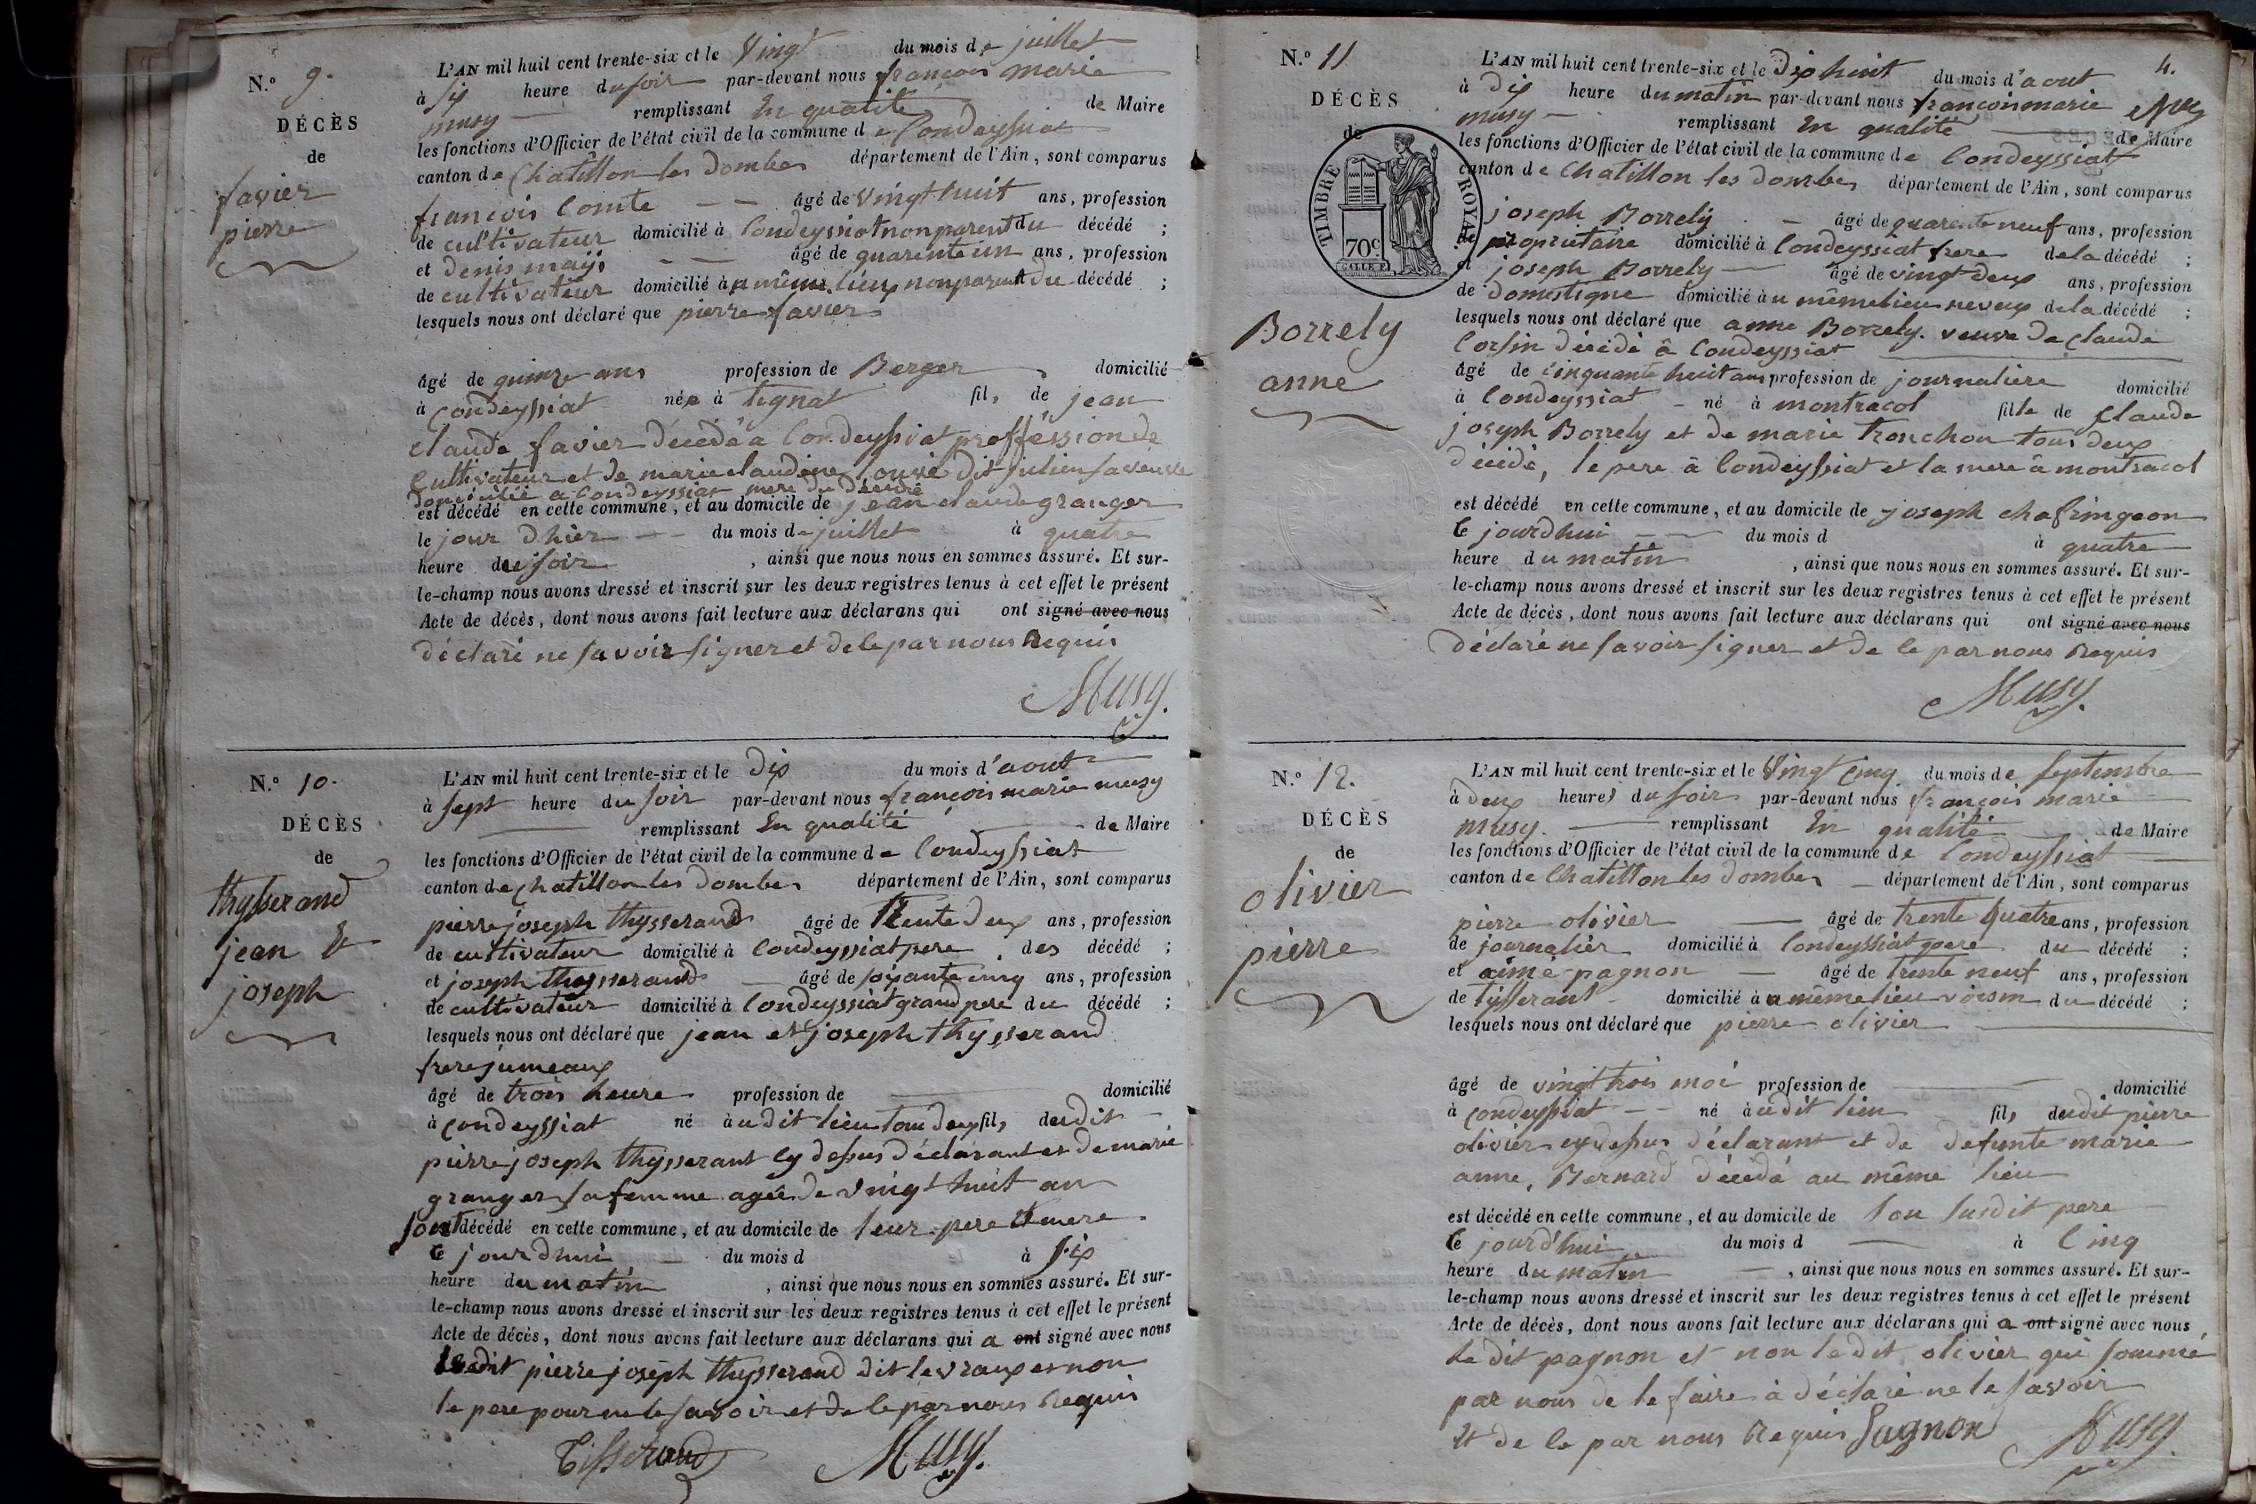 N.º 9.
DÉCÈS
de
favier
pierre
L'AN mil huit cent trente-six et le Vingt du mois de juillet
à six heure du soir par-devant nous françois marie
musy remplissant En qualité de Maire
les fonctions d'Officier de l'état civil de la commune de Condeyssiat
canton de Chatillon les dombes département de l'Ain, sont comparus
françois Comte âgé de vingt huit ans, profession
de cultivateur domicilié à Condeyssiat non parent du décédé ;
et denis âgé de quarente un ans, profession
de cultivateur domicilié à u même lieu non parent du décédé ;
lesquels nous ont déclaré que pierre favier
âgé de quinze ans profession de Berger domicilié
à Condeyssiat née à tignat fils de jean
claude favier décédé a Condeyssiat proffession de
Cultivateur et de marie claudine dit julien sa veuve
domicilié a Condeyssiat mere du décédé
est décédé en cette commune, et au domicile de jean claude granger
le jour d'hier du mois de juillet à quatre
heure du soir , ainsi que nous nous en sommes assuré. Et sur-
le-champ nous avons dressé et inscrit sur les deux registres tenus à cet effet le présent
Acte de décès, dont nous avons fait lecture aux déclarans qui ont signé avec nous
déclaré ne savoir signer et de le par nous Requis
Musy.
N.º 10.
DÉCÈS
de
thysserand
jean &
joseph
L'AN mil huit cent trente-six et le dix du mois d'aout
à sept heure du soir par-devant nous françois marie musy
remplissant En qualité de Maire
les fonctions d'Officier de l'état civil de la commune de Condeyssiat
canton de chatillon les dombes département de l'Ain, sont comparus
pierre joseph thysserand âgé de Trente deux ans, profession
de cultivateur domicilié à Condeyssiat pere des décédé ;
et joseph thysserand âgé de soixante cinq ans, profession
de cultivateur domicilié à Condeyssiat grand pere du décédé ;
lesquels nous ont déclaré que jean et joseph thysserand
frere jumeaux
âgé de trois heure profession de domicilié
à Condeyssiat né à u dit lieu tous deux fils dudit
pierre joseph thysserant cy dessus déclarant et de marie
granger sa femme agée de vingt huit an
sont décédé en cette commune, et au domicile de leur pere & mere
Ce jourdhui du mois d à six
heure du matin , ainsi que nous nous en sommes assuré. Et sur-
le-champ nous avons dressé et inscrit sur les deux registres tenus à cet effet le présent
Acte de décès, dont nous avons fait lecture aux déclarans qui a ont signé avec nous
ledit pierre joseph thysserand dit levraux et non
le pere pour ne le savoir et de le par nous Requis
Tisserand Musy.
4.
N.º 11
DÉCÈS
de
TIMBRE ROYAL
70 c.
Borrely
anne
L'AN mil huit cent trente-six et le dix huit du mois d'aout
à dix heure du matin par-devant nous françois marie
musy remplissant En qualité de Maire
les fonctions d'Officier de l'état civil de la commune de Condeyssiat
canton de Chatillon les dombes département de l'Ain, sont comparus
joseph Borrely âgé de quarente neuf ans, profession
de propriétaire domicilié à Condeyssiat frere de la décédé ;
et joseph Borrely âgé de vingt deux ans, profession
de domestique domicilié à u même lieu neveux de la décédé ;
lesquels nous ont déclaré que anne Borrely. veuve de claude
Corsin décédé à Condeyssiat
âgé de Cinquante huit ans profession de journaliere domicilié
à Condeyssiat né à montracol fille de Claude
joseph Borrely et de marie tronchon tous deux
décédé, le pere à Condeyssiat et la mere à montracol
est décédé en cette commune, et au domicile de joseph chafringeon
Ce jourdhui du mois d à quatre
heure du matin , ainsi que nous nous en sommes assuré. Et sur-
le-champ nous avons dressé et inscrit sur les deux registres tenus à cet effet le présent
Acte de décès, dont nous avons fait lecture aux déclarans qui ont signé avec nous
déclaré ne savoir signer et de le par nous Requis
Musy.
N.º 12.
DÉCÈS
de
olivier
pierre
L'AN mil huit cent trente-six et le Vingt Cinq du mois de Septembre
à deux heures du soir par-devant nous françois marie
musy. remplissant En qualité de Maire
les fonctions d'Officier de l'état civil de la commune de Condeyssiat
canton de Chatillon les dombes département de l'Ain, sont comparus
pierre olivier âgé de trente quatre ans, profession
de journalier domicilié à Condeyssiat pere du décédé ;
et aimé pagnon âgé de trente neuf ans, profession
de tisserant domicilié à u même lieu voisin du décédé ;
lesquels nous ont déclaré que pierre olivier
âgé de vingt trois moi profession de domicilié
à Condeyssiat né à u dit lieu fils dudit pierre
olivier cy dessus déclarant et de defunte marie
anne, Bernard décédé au même lieu
est décédé en cette commune, et au domicile de son susdit pere
Ce jourd'hui du mois d à Cinq
heure du matin , ainsi que nous nous en sommes assuré. Et sur-
le-champ nous avons dressé et inscrit sur les deux registres tenus à cet effet le présent
Acte de décès, dont nous avons fait lecture aux déclarans qui a ont signé avec nous,
le dit pagnon et non ledit olivier qui sommé
par nous de le faire à déclaré ne le savoir
Et de le par nous Requis Pagnon Musy